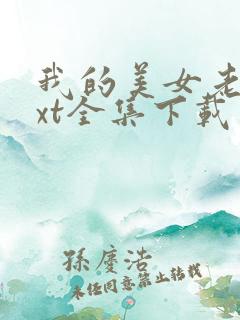 我的美女老
xt全集下载
孫慶浩
未经同意禁止转载